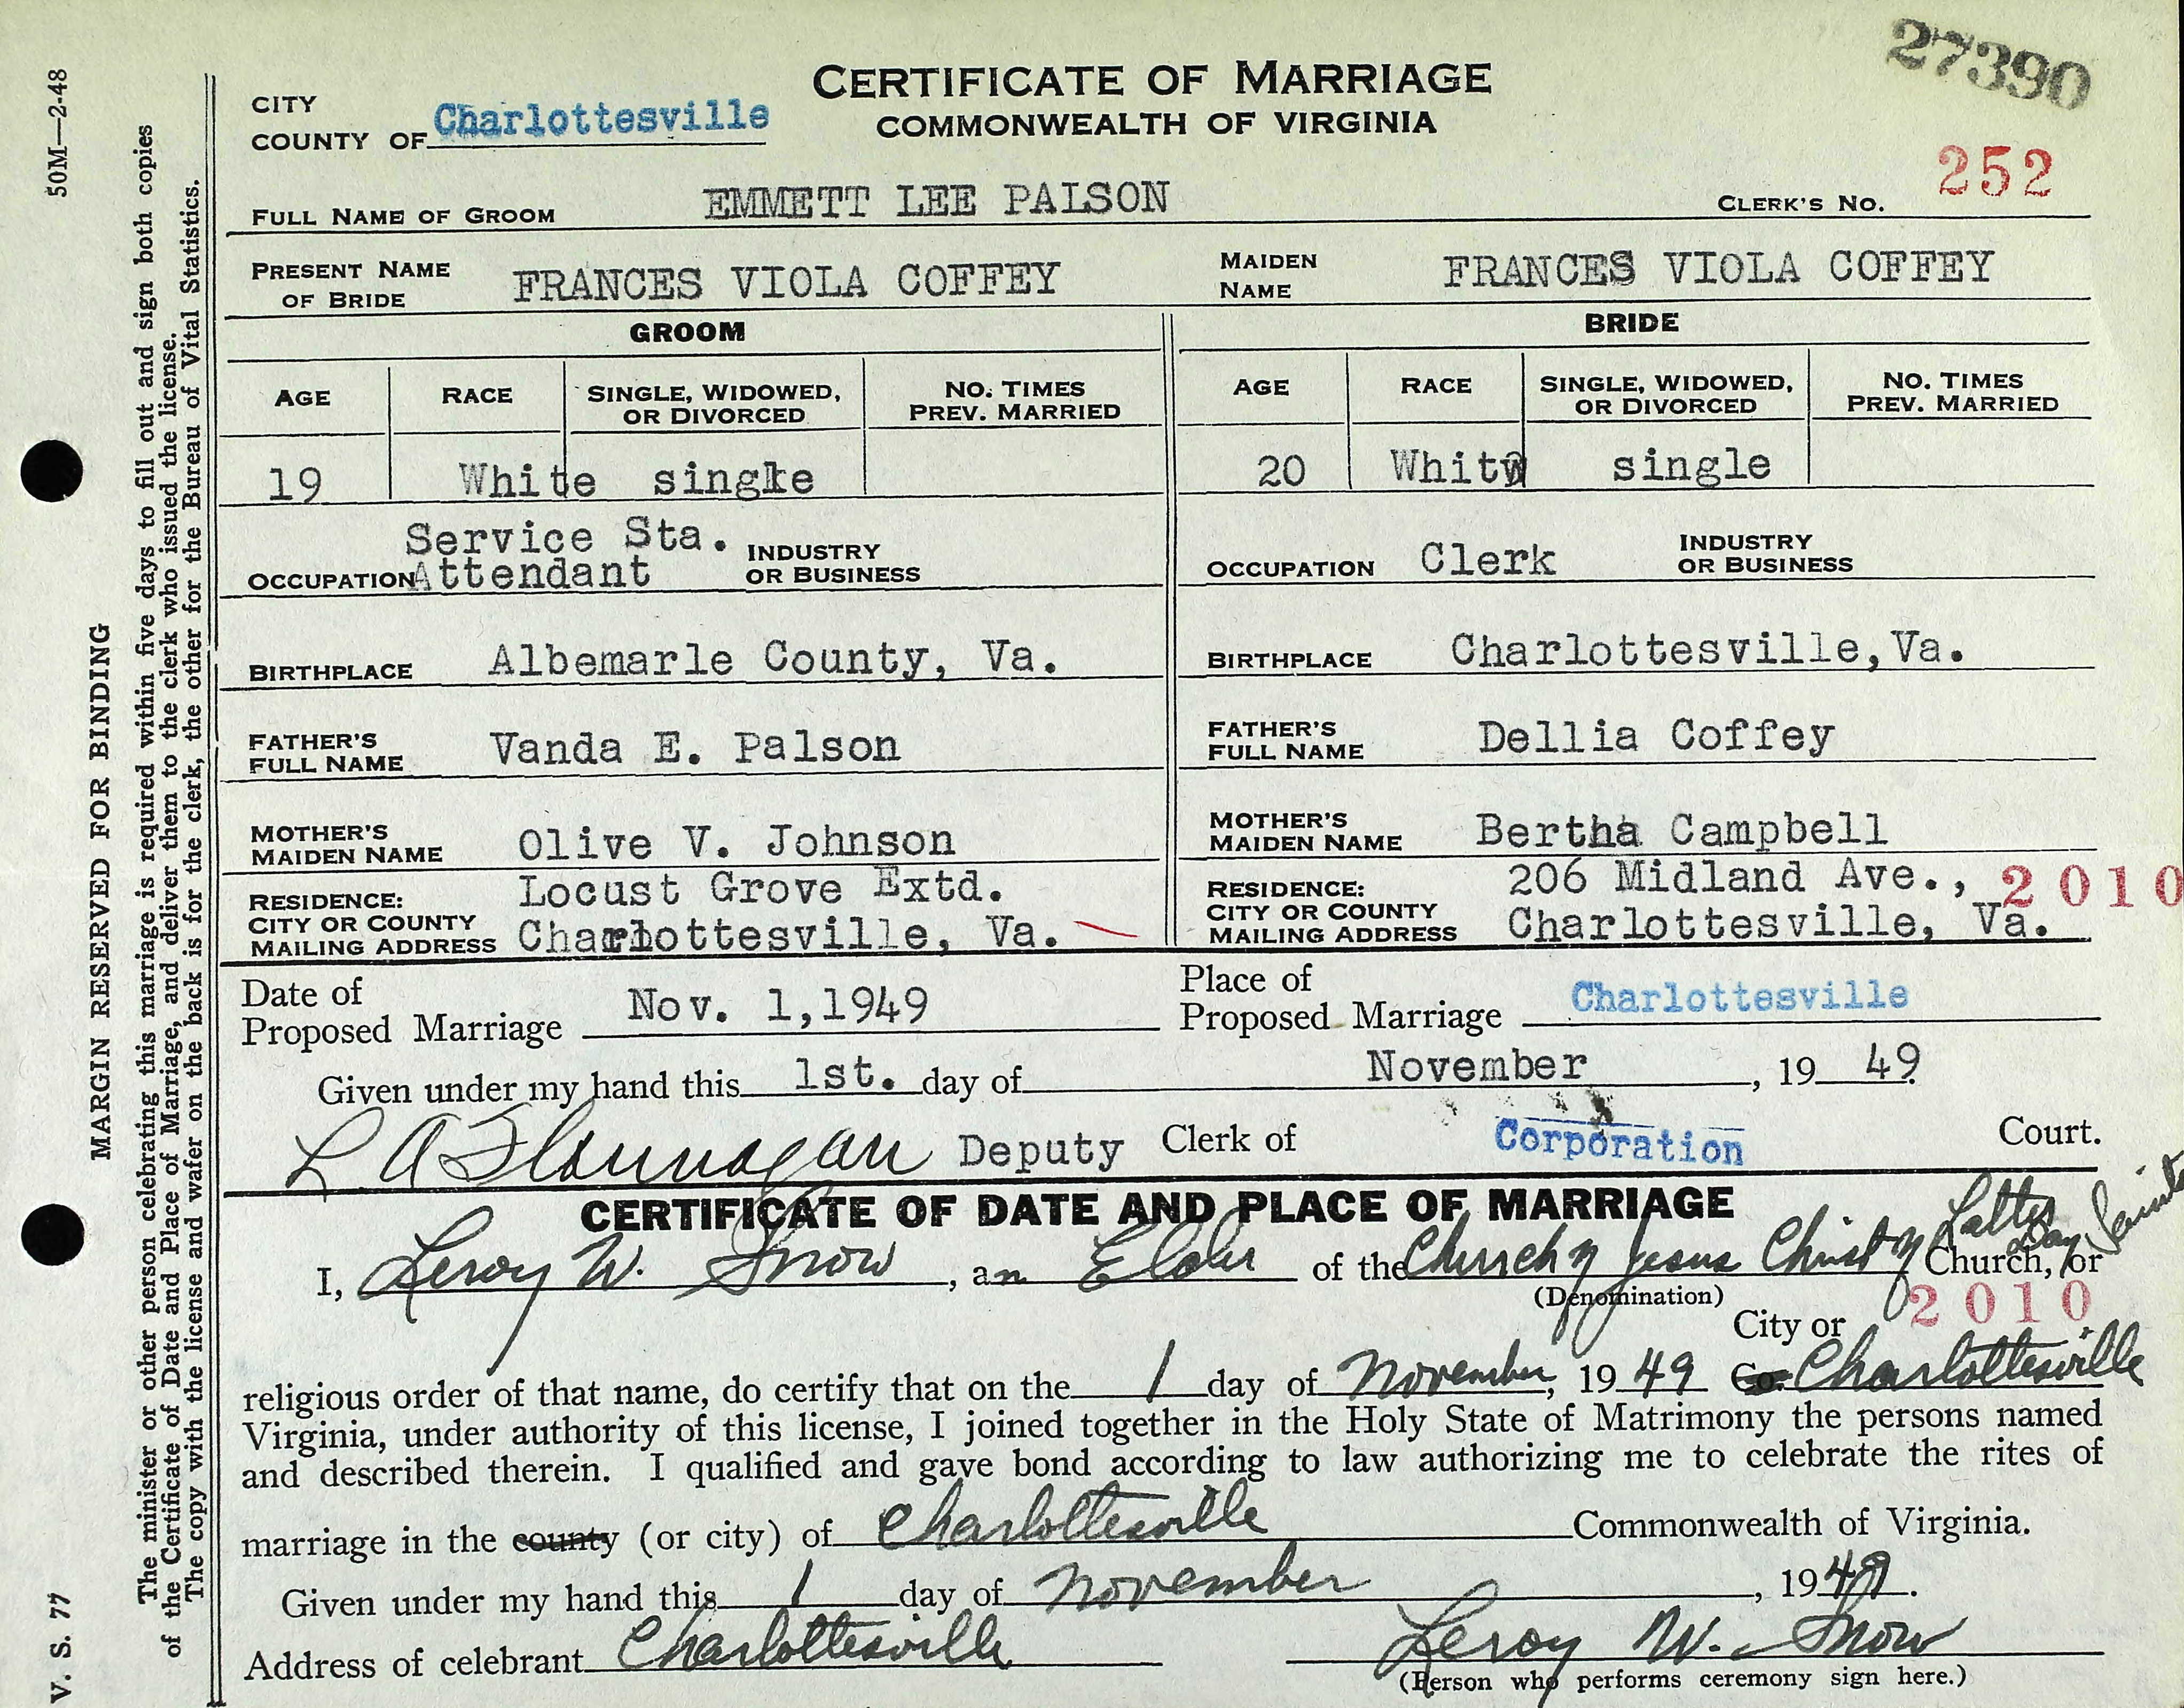 27390
CERTIFICATE OF MARRIAGE
COMMONWEALTH OF VIRGINIA
CITY
COUNTY OF Charlottesville
252
FULL NAME OF GROOM EMMETT LEE PALSON CLERK'S NO.
PRESENT NAME OF BRIDE FRANCES VIOLA COFFEY MAIDEN NAME FRANCES VIOLA COFFEY
GROOM BRIDE
AGE RACE SINGLE, WIDOWED, OR DIVORCED NO. TIMES PREV. MARRIED AGE RACE SINGLE, WIDOWED, OR DIVORCED NO. TIMES PREV. MARRIED
19 White single 20 White single
Service Sta.
OCCUPATION Attendant INDUSTRY OR BUSINESS OCCUPATION Clerk INDUSTRY OR BUSINESS
BIRTHPLACE Albemarle County, Va. BIRTHPLACE Charlottesville, Va.
FATHER'S FULL NAME Vanda E. Palson FATHER'S FULL NAME Dellia Coffey
MOTHER'S MAIDEN NAME Olive V. Johnson MOTHER'S MAIDEN NAME Bertha Campbell
RESIDENCE: Locust Grove Extd. RESIDENCE: 206 Midland Ave., 2010
CITY OR COUNTY CITY OR COUNTY
MAILING ADDRESS Charlottesville, Va. MAILING ADDRESS Charlottesville, Va.
Date of Proposed Marriage Nov. 1,1949 Place of Proposed Marriage Charlottesville
Given under my hand this 1st. day of November, 19 49
L A Flannagan Deputy Clerk of Corporation Court.
CERTIFICATE OF DATE AND PLACE OF MARRIAGE
I, Leroy W. Snow, an Elder of the Church of Jesus Christ of Latter Day Saints Church, or
(Denomination)
City or 2010
religious order of that name, do certify that on the 1 day of November, 19 49 Co. Charlottesville
Virginia, under authority of this license, I joined together in the Holy State of Matrimony the persons named
and described therein. I qualified and gave bond according to law authorizing me to celebrate the rites of
marriage in the county (or city) of Charlottesville Commonwealth of Virginia.
Given under my hand this 1 day of November, 1949.
Address of celebrant Charlottesville Leroy W. Snow
(Person who performs ceremony sign here.)
50M—2-48
MARGIN RESERVED FOR BINDING
V. S. 77
The minister or other person celebrating this marriage is required within five days to fill out and sign both copies
of the Certificate of Date and Place of Marriage, and deliver them to the clerk who issued the license.
The copy with the license and wafer on the back is for the clerk, the other for the Bureau of Vital Statistics.